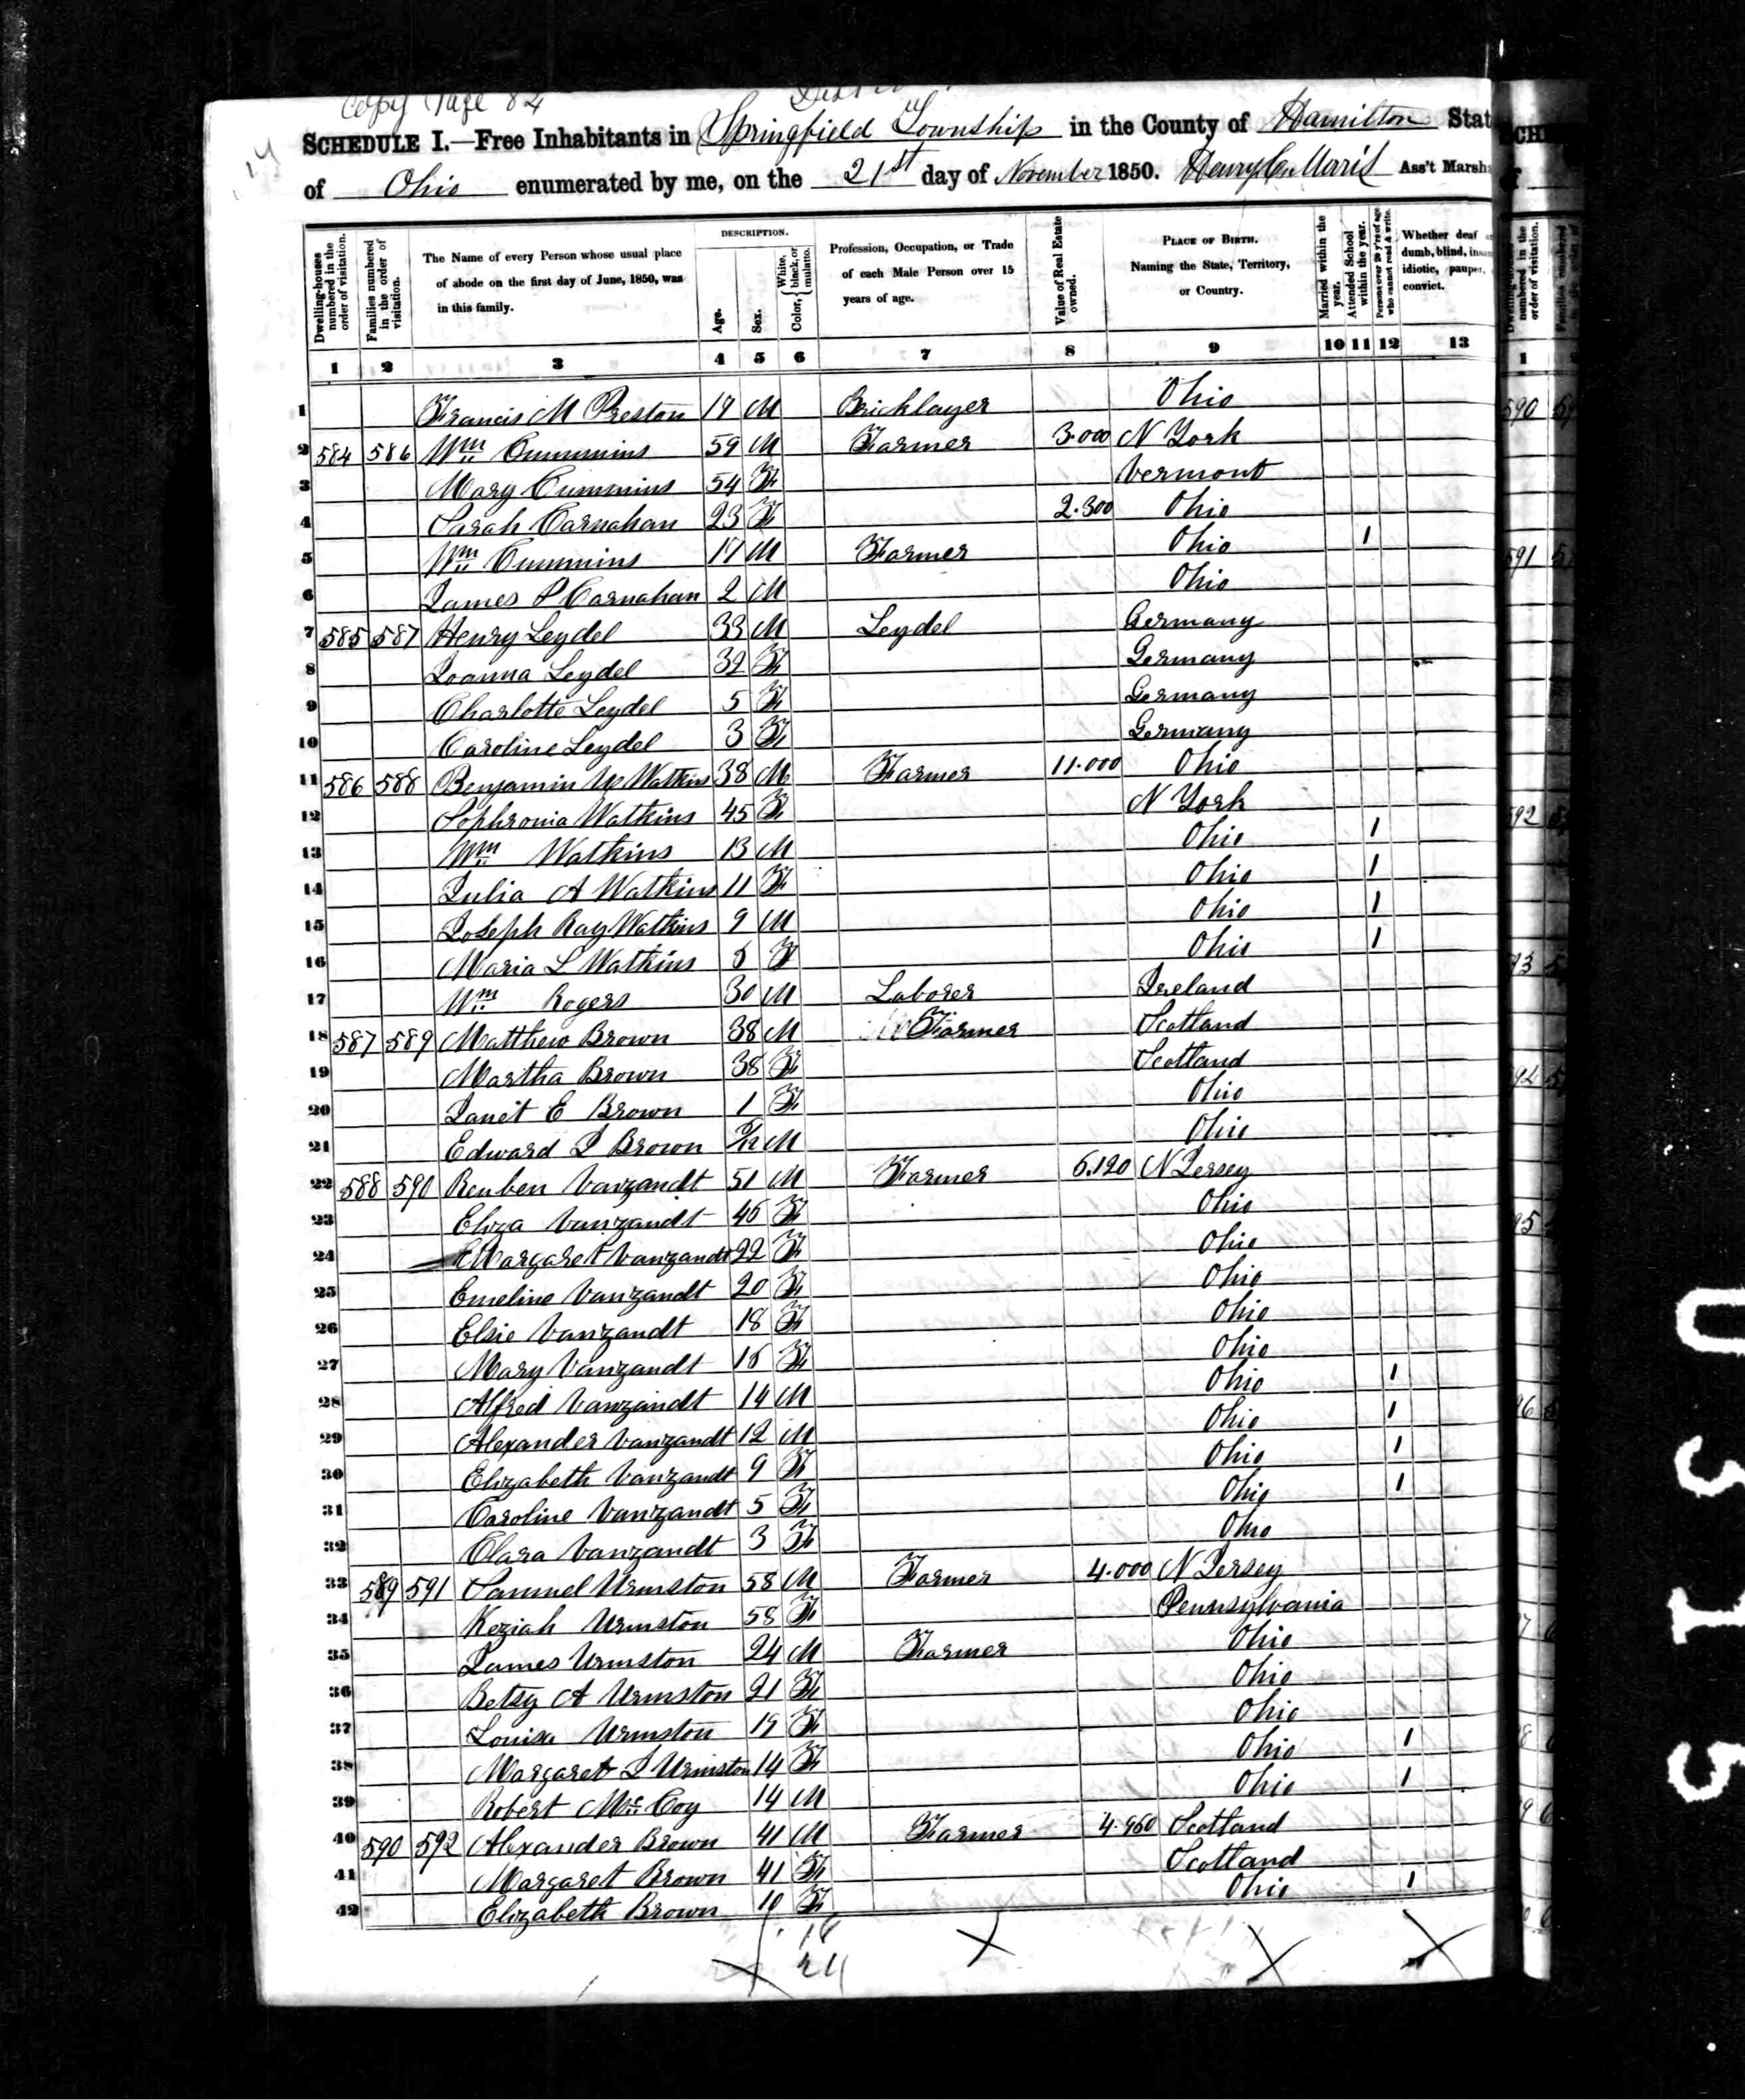 Copy Page 84
SCHEDULE I.—Free Inhabitants in Springfield Township in the County of Hamilton Stat
of Ohio enumerated by me, on the 21st day of November 1850. Henry Morris Ass't Marsh
Dwelling-houses numbered in the order of visitation.
Families numbered in the order of visitation.
The Name of every Person whose usual place of abode on the first day of June, 1850, was in this family.
DESCRIPTION.
Age.
Sex.
Color, White, black, or mulatto.
Profession, Occupation, or Trade of each Male Person over 15 years of age.
Value of Real Estate owned.
PLACE OF BIRTH. Naming the State, Territory, or Country.
Married within the year.
Attended School within the year.
Persons over 20 y'rs of age who cannot read & write.
Whether deaf dumb, blind, insa idiotic, pauper, convict.
1 2 3 4 5 6 7 8 9 10 11 12 13
1 Francis M Preston M Bricklayer Ohio
2 584 586 Wm Cummins 59 M Farmer 3.000 N York
3 Mary Cummins 54 F Vermont
4 Sarah Carnahan 23 F 2.300 Ohio
5 Wm Cummins 17 M Farmer Ohio 1
6 James P Carnahan 2 M Ohio
7 585 587 Henry Leydel 33 M Leydel Germany
8 Joanna Leydel 32 F Germany
9 Charlotte Leydel 5 F Germany
10 Caroline Leydel 3 F Germany
11 586 588 Benjamin W Watkins 38 M Farmer 11.000 Ohio
12 Sophronia Watkins 45 F N York
13 Wm Watkins 13 M Ohio 1
14 Julia A Watkins 11 F Ohio 1
15 Joseph Ray Watkins 9 M Ohio 1
16 Maria L Watkins F Ohio 1
17 Wm Rogers 30 M Laborer Ireland
18 587 589 Matthew Brown 38 M Farmer Scotland
19 Martha Brown 38 F Scotland
20 Janet E Brown 1 F Ohio
21 Edward J Brown M Ohio
22 588 590 Reuben Vanzandt 51 M Farmer 6.120 N Jersey
23 Eliza Vanzandt 46 F Ohio
24 Margaret Vanzandt 22 F Ohio
25 Emeline Vanzandt 20 F Ohio
26 Elsie Vanzandt 18 F Ohio
27 Mary Vanzandt 16 F Ohio
28 Alfred Vanzandt 14 M Ohio 1
29 Alexander Vanzandt 12 M Ohio 1
30 Elizabeth Vanzandt 9 F Ohio 1
31 Caroline Vanzandt 5 F Ohio 1
32 Clara Vanzandt 3 F Ohio
33 589 591 Samuel Urmston 58 M Farmer 4.000 N Jersey
34 Keziah Urmston 58 F Pennsylvania
35 James Urmston 24 M Farmer Ohio
36 Betsy A Urmston 21 F Ohio
37 Louisa Urmston 19 F Ohio
38 Margaret J Urmston 14 F Ohio 1
39 Robert Mc Coy 14 M Ohio 1
40 590 592 Alexander Brown 41 M Farmer 4.960 Scotland
41 Margaret Brown 41 F Scotland
42 Elizabeth Brown 10 F Ohio 1
18
24